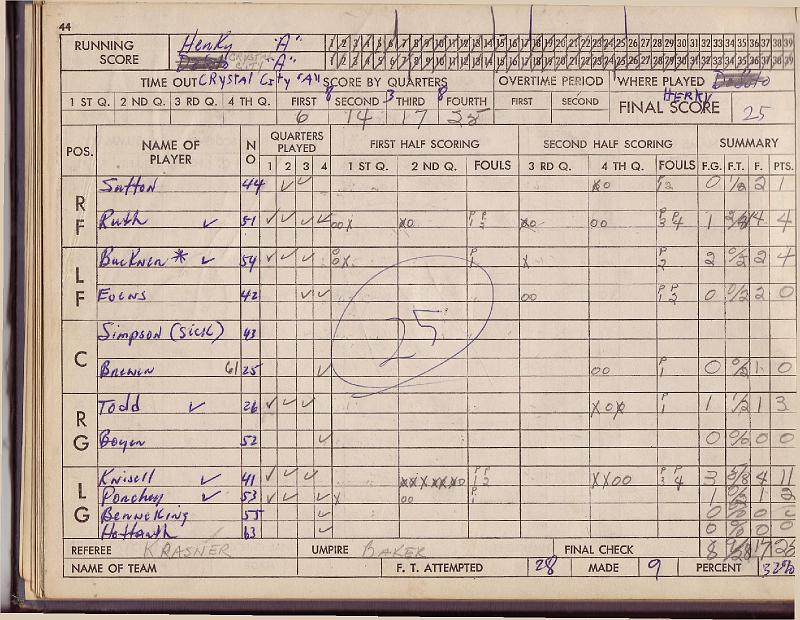 44
RUNNING SCORE Henky "A" 1 2 3 4 5 6 7 8 9 10 11 12 13 14 15 16 17 18 19 20 21 22 23 24 25 26 27 28 29 30 31 32 33 34 35 36 37 38 39
CRYSTAL CITY "A" 1 2 3 4 5 6 7 8 9 10 11 12 13 14 15 16 17 18 19 20 21 22 23 24 25 26 27 28 29 30 31 32 33 34 35 36 37 38 39
TIME OUT CRYSTAL CITY "A" SCORE BY QUARTERS OVERTIME PERIOD WHERE PLAYED DeSoto
1 ST Q. 2 ND Q. 3 RD Q. 4 TH Q. FIRST 8 SECOND 3 THIRD 8 FOURTH FIRST SECOND HERKY
6 14 17 25 FINAL SCORE 25
POS. NAME OF PLAYER NO QUARTERS PLAYED FIRST HALF SCORING SECOND HALF SCORING SUMMARY
1 2 3 4 1 ST Q. 2 ND Q. FOULS 3 RD Q. 4 TH Q. FOULS F.G. F.T. F. PTS.
RF Sutton 44 ✓ ✓ xo P 1 2 0 1/2 2 1
Ruth ✓ 51 ✓ ✓ ✓ ✓ oox xo P P 1 2 xo oo P P 3 4 1 4 4
LF Buckner * ✓ 54 ✓ ✓ ✓ o ox P 1 x P 2 2 0/2 2 4
Evens 42 ✓ ✓ oo P P 1 2 0 0/2 2 0
C Simpson (sick) 43
Brewen 61 25 ✓ oo P 1 0 0/2 1 0
RG Todd ✓ 26 ✓ ✓ ✓ xox P 1 1 1/2 1 3
Boyer 52 ✓ 0 0/0 0 0
LG Knisell ✓ 41 ✓ ✓ ✓ P P 1 2 xxoo P P 3 4 3 5/8 4 11
✓ 53 ✓ ✓ ✓ x oo P 1 1 0/2 1 2
55 ✓ 0 0/0 0
63 ✓ 0 0/0 0 0
25
REFEREE KRASNER UMPIRE BAKER FINAL CHECK 8 9/28 17 25
NAME OF TEAM F. T. ATTEMPTED 28 MADE 9 PERCENT 32%